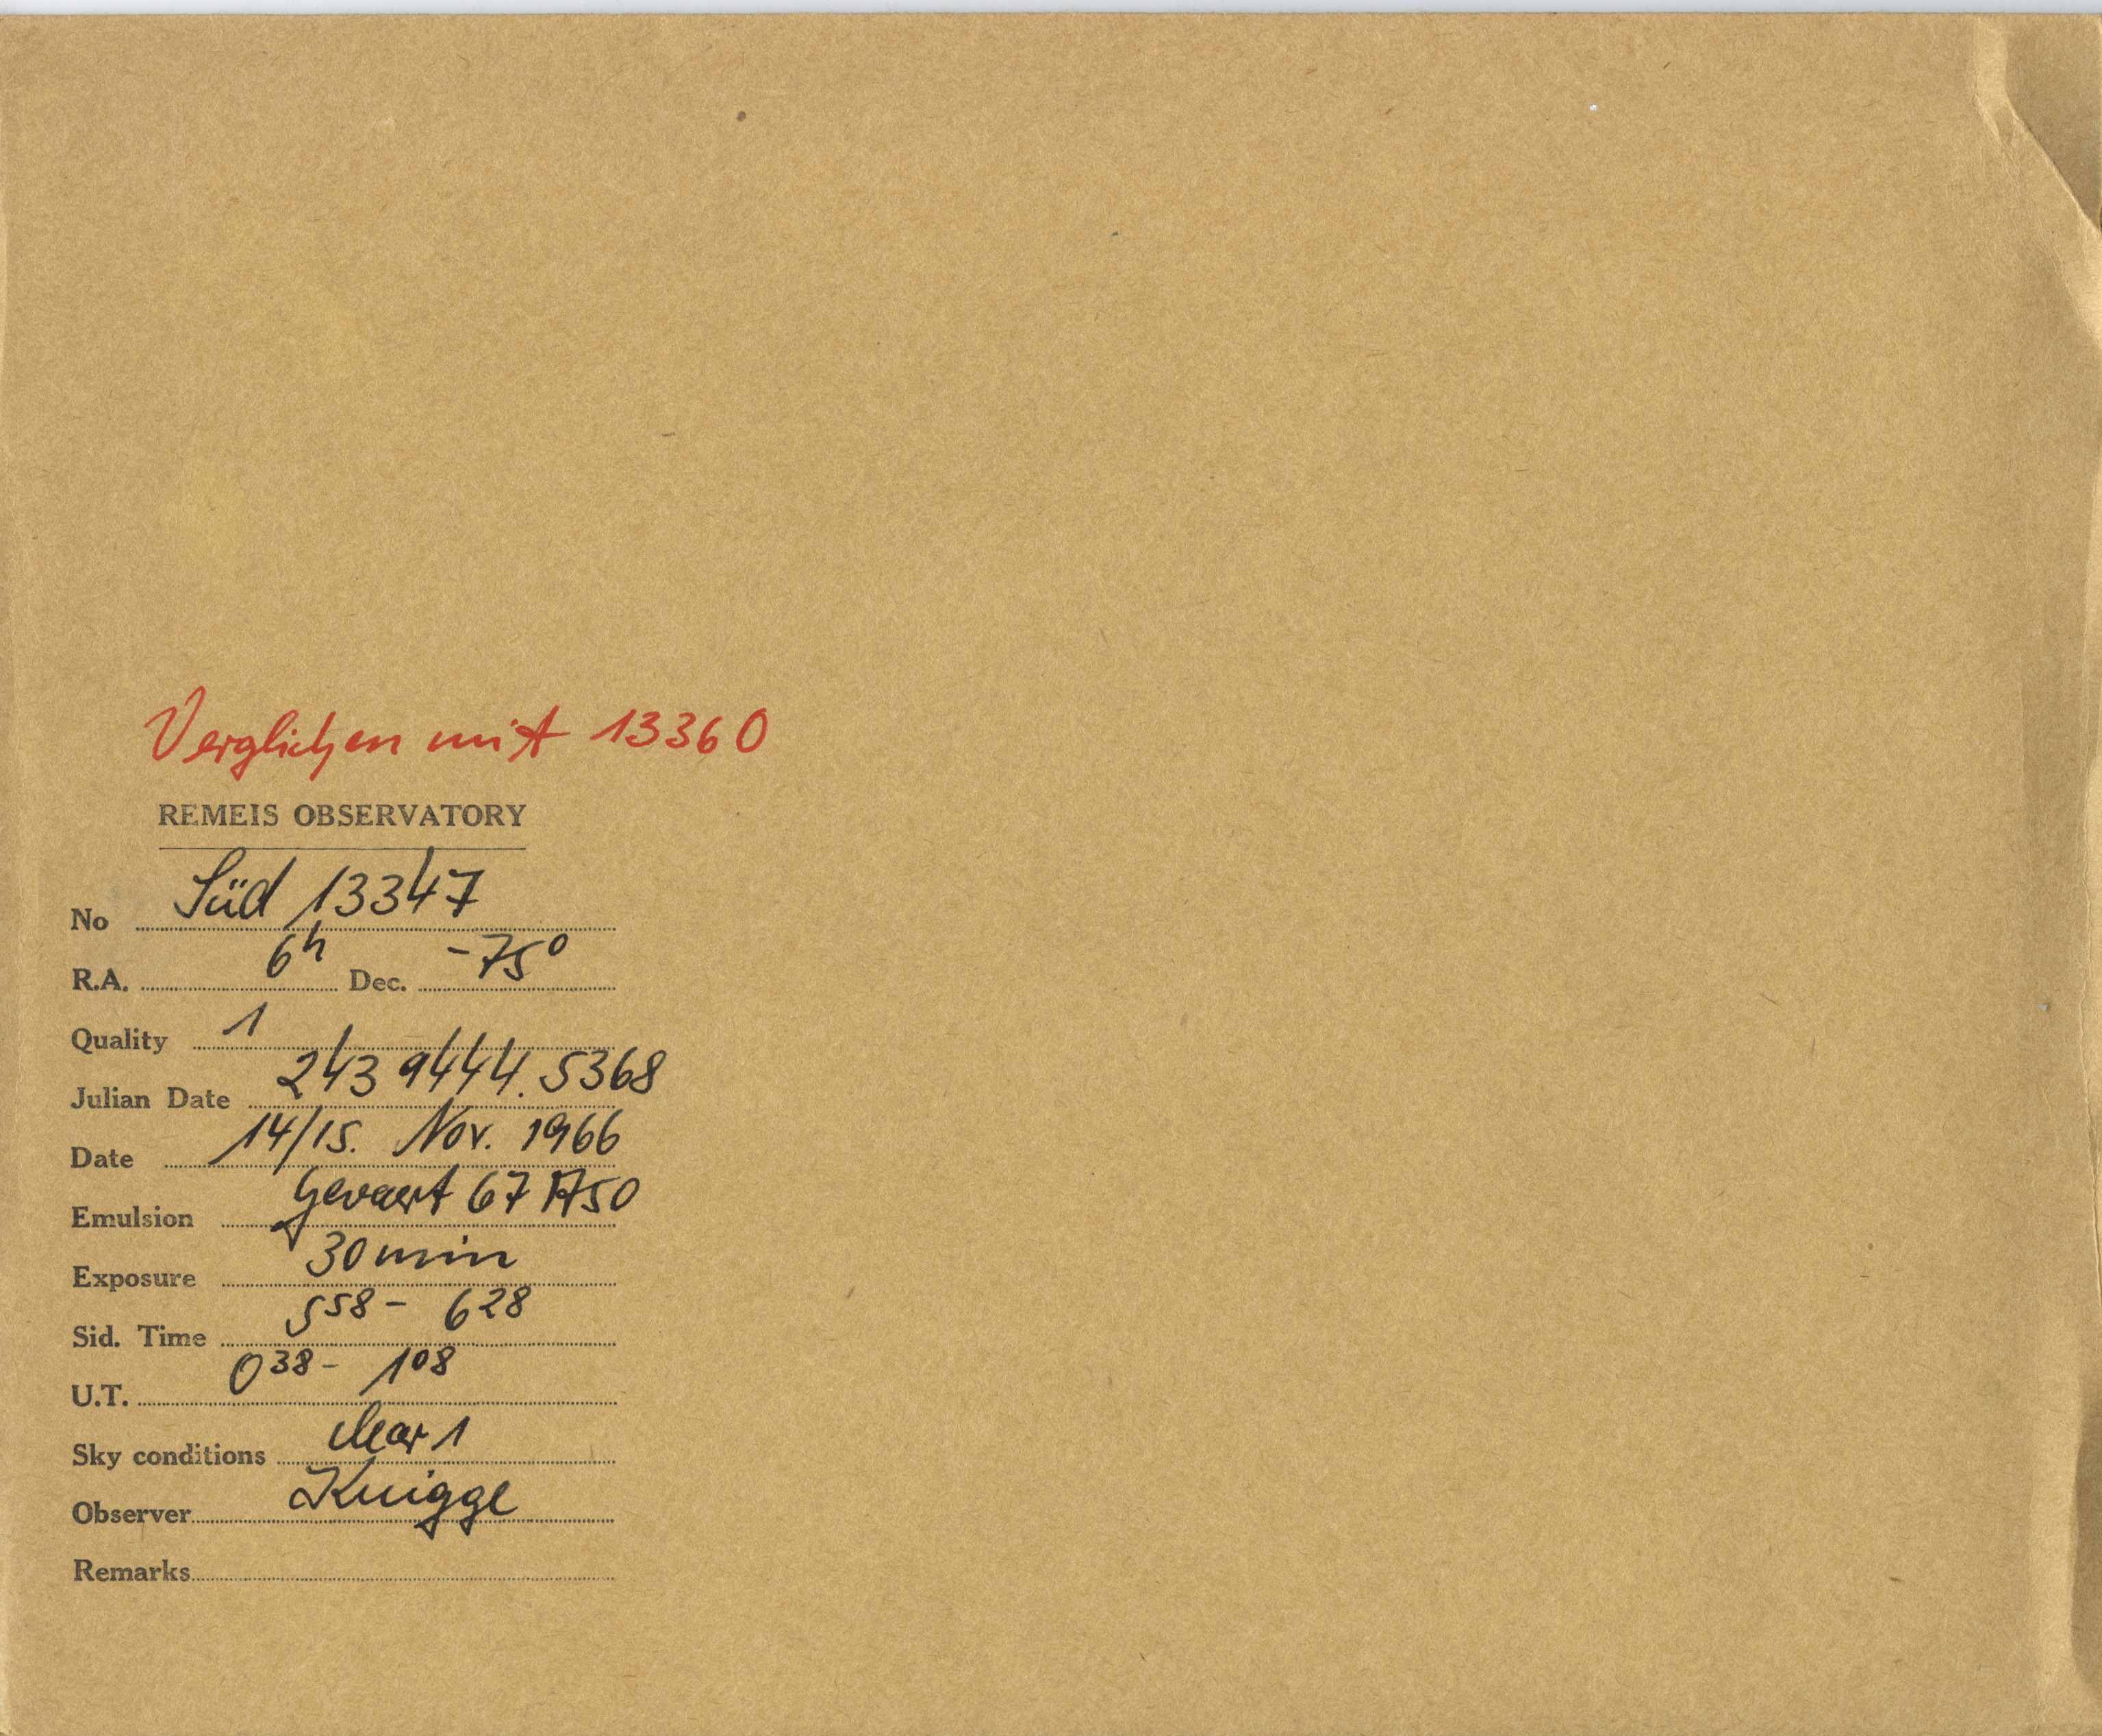 Verglichen mit 13360
REMEIS OBSERVATORY
No Süd 13347
R.A. 6h Dec. -75°
Quality 1
Julian Date 243 9444.5368
Date 14/15. Nov. 1966
Emulsion Gevaert 67 A50
Exposure 30min
Sid. Time 5 58 - 6 28
U.T. 0 38 - 1 08
Sky conditions clear 1
Observer Knigge
Remarks